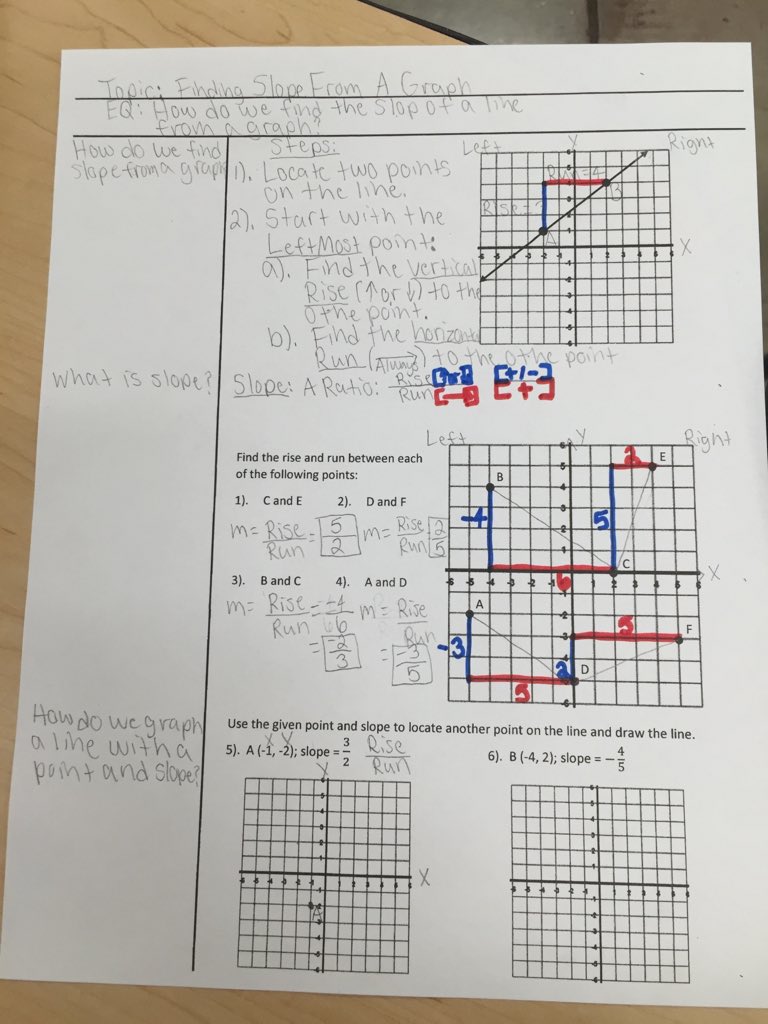 Topic: Finding Slope From A Graph
EQ: How do we find the slop of a line
from a graph?
How do we find
slope from a graph
Steps:
1). Locate two points
on the line.
2). Start with the
LeftMost point:
a). Find the vertical
Rise (↑or↓) to the
othe point.
b). Find the horizonta
Run (Always→) to the othe point
Left
Y
Right
Run=4
B
Rise=3
A
X
What is slope?
Slope: A Ratio: Rise [+/-]
Run [+]
Find the rise and run between each
of the following points:
1). C and E 2). D and F
m= Rise = 5 m= Rise 2
Run 2 Run 5
3). B and C 4). A and D
m= Rise = -4 m= Rise
Run 6 Run
= -2 = -3
3 5
Left
Y
Right
2
E
B
-4
5
C
X
6
A
-3
5
F
2
D
5
How do we graph
a line with a
point and slope?
Use the given point and slope to locate another point on the line and draw the line.
X Y
5). A (-1, -2); slope = 3/2 Rise
Run
6). B (-4, 2); slope = −4/5
Y
X
A